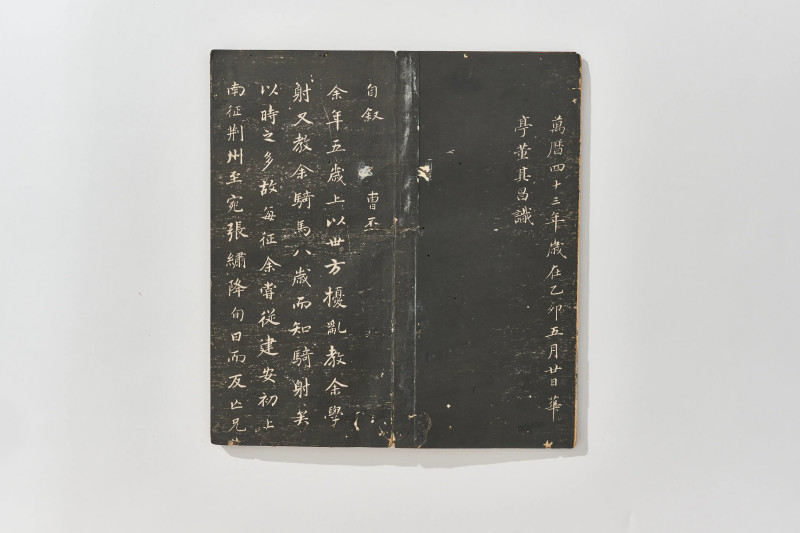 萬曆四十三年歲在乙卯五月廿日華
亭董其昌識
自叙
曹丕
余年五歲上以世方擾亂教余學
射又教余騎馬八歲而知騎射矣
以時之多故每征余嘗從建安初上
南征荆州至宛張繡降旬日而反亡兄